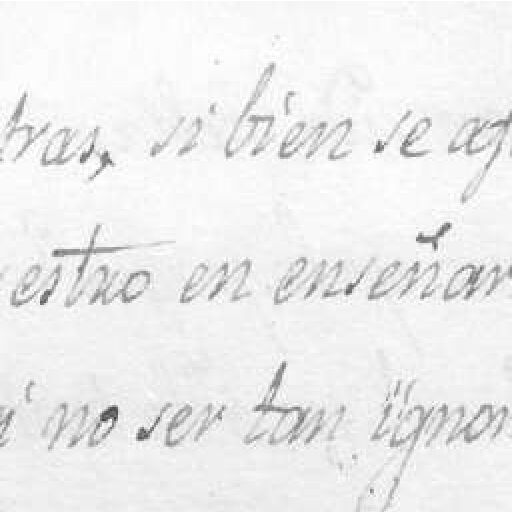 tras, si bien se af
estro en enseñar
i no ser tan ignor